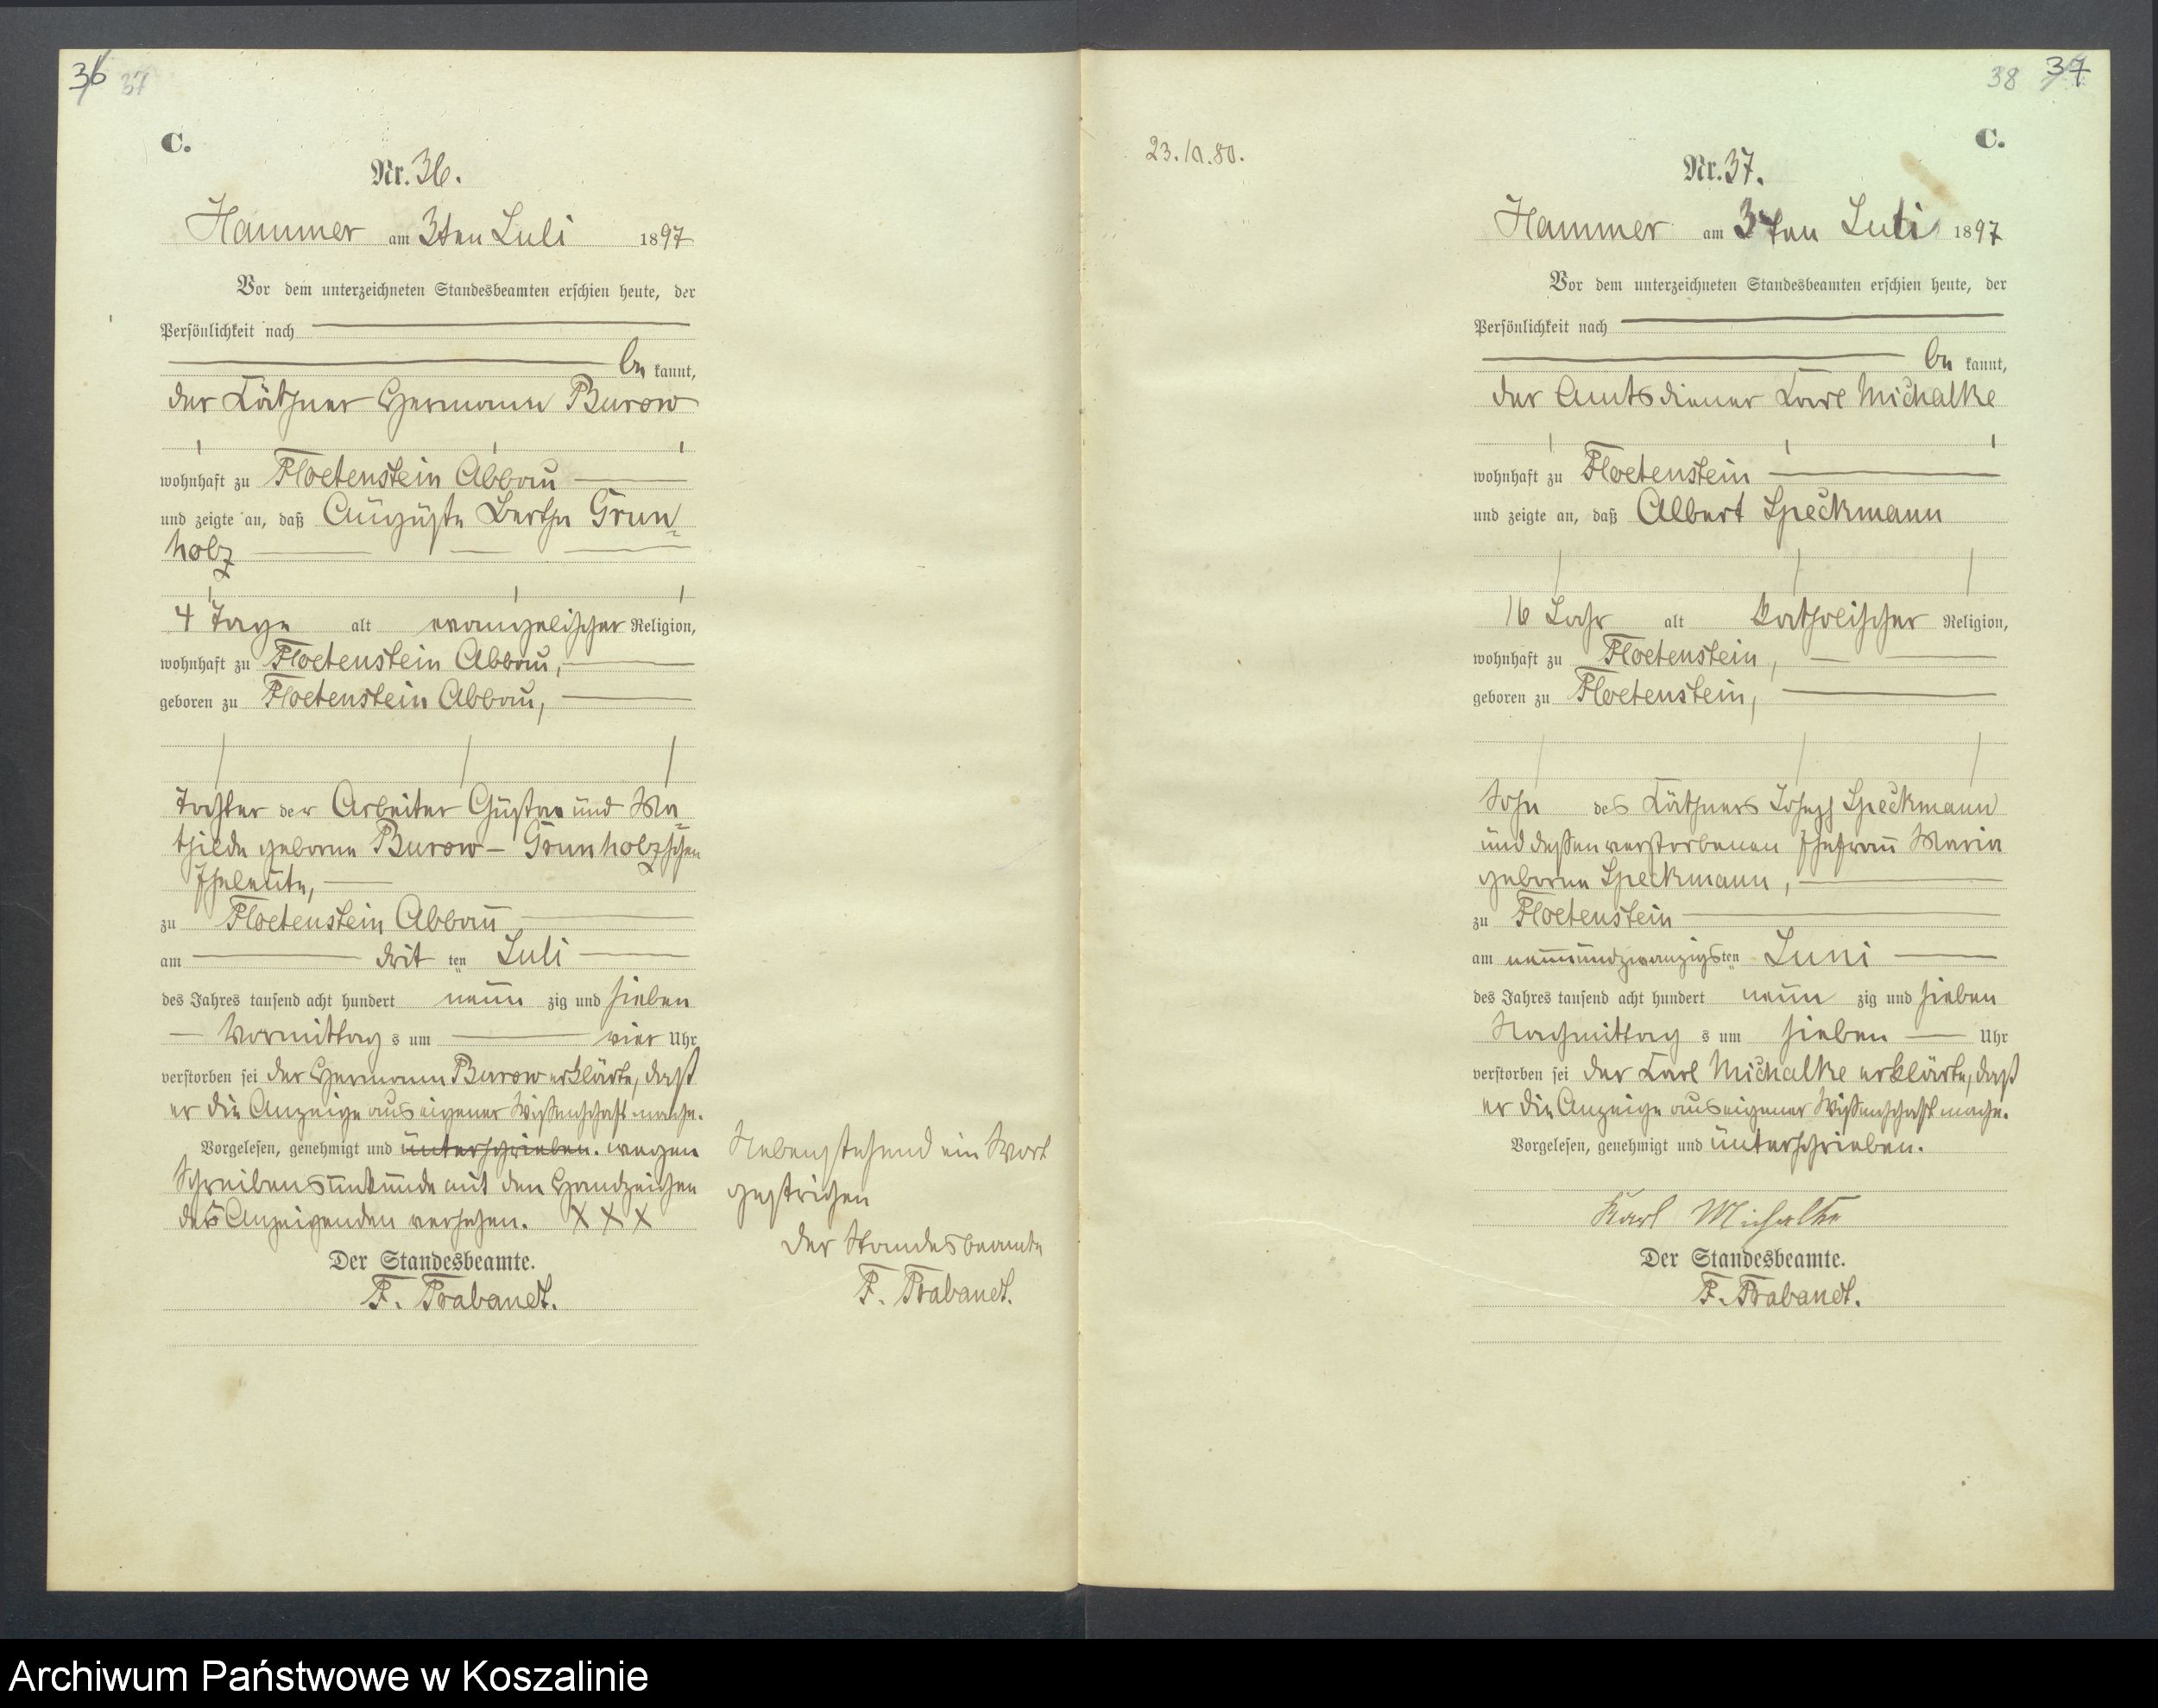 36 37
C.
Nr. 36.
Hammer am 3ten Juli 1897
Vor dem unterzeichneten Standesbeamten erschien heute, der
Persönlichkeit nach
be kannt,
der Käthner Hermann Burow
wohnhaft zu Floetenstein Abbau
und zeigte an, daß Auguste Bertha Grun=
holz
4 Tage alt evangelischer Religion,
wohnhaft zu Floetenstein Abbau,
geboren zu Floetenstein Abbau,
Tochter der Arbeiter Gustav und Ma=
thilde geborne Burow - Grunholzschen
Eheleute,
zu Floetenstein Abbau
am drit ten Juli
des Jahres tausend acht hundert neun zig und sieben
Vormittag s um vier Uhr
verstorben sei der Hermann Burow erklärte, daß
er die Anzeige aus eigener Wissenschaft mache.
Vorgelesen, genehmigt und unterschrieben. wegen
Schreibensunkunde mit den Handzeichen
des Anzeigenden versehen. X X X
Der Standesbeamte.
F. Brabandt.
Nebenstehend ein Wort
gestrichen
Der Standesbeamte
F. Brabandt.
38 37
23.10.80.
C.
Nr. 37.
Hammer am 3ten Juli 1897
Vor dem unterzeichneten Standesbeamten erschien heute, der
Persönlichkeit nach
be kannt,
der Amtsdiener Karl Michalke
wohnhaft zu Floetenstein
und zeigte an, daß Albert Speckmann
16 Jahr alt katholischer Religion,
wohnhaft zu Floetenstein,
geboren zu Floetenstein,
Sohn des Käthners Joseph Speckmann
und dessen verstorbenen Ehefrau Maria
geborne Speckmann,
zu Floetenstein
am neunundzwanzigsten Juni
des Jahres tausend acht hundert neun zig und sieben
Nachmittag s um sieben Uhr
verstorben sei der Karl Michalke erklärte, daß
er die Anzeige aus eigener Wissenschaft mache.
Vorgelesen, genehmigt und unterschrieben.
Karl Michalke
Der Standesbeamte.
F. Brabandt.
Archiwum Państwowe w Koszalinie